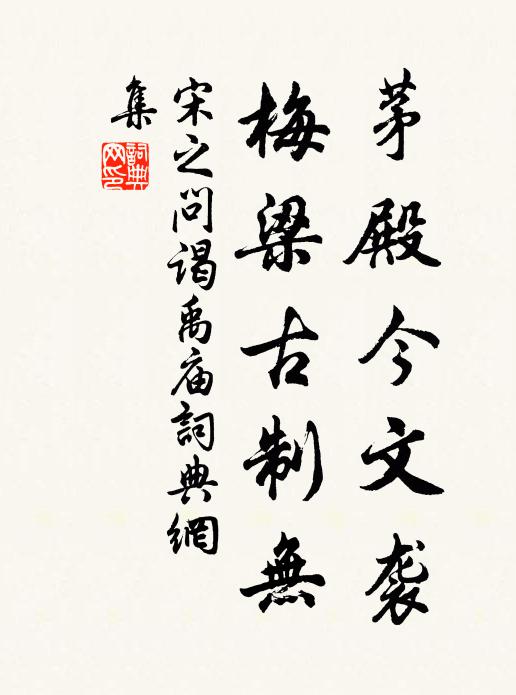 茅殿今文袭
梅梁古制無
宋之问謁禹庙詞典網
集
詞典
网印